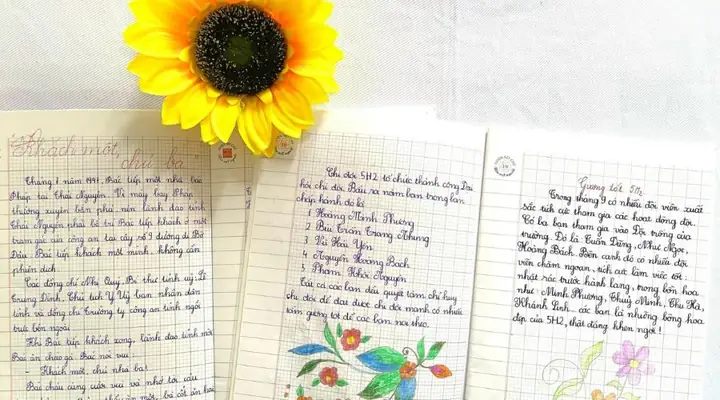 "Khách một
chủ ba"
Tháng 1 năm 1947, Bác tiếp một nhà báo
Pháp tại Thái Nguyên. Vì máy bay Pháp
thường xuyên bắn phá nên lãnh đạo tỉnh
Thái Nguyên phải bố trí Bác tiếp khách ở một
trạm gác của công an tại cây số 9 đường đi Bờ
Đậu. Bác tiếp khách một mình, không cần
phiên dịch.
Các đồng chí Nhị Quý, Bí thư tỉnh uỷ; Lê
Trung Đình, Chủ tịch Uỷ ban nhân dân
tỉnh và đồng chí Trưởng ty công an tỉnh ngồi
trực bên ngoài.
Khi Bác tiếp khách xong, lãnh đạo tỉnh mời
Bác ăn cháo gà. Bác nói vui:
- Khách một, chủ nhà ba!
Bác cháu cùng cười vui và nhớ tới câu
Chi đội 5H2 tổ chức thành công Đại
hội chi đội. Bầu ra năm bạn trong ban
chấp hành đó là:
1 Hoàng Minh Phương
2 Bùi Trần Trang Nhung
3 Vũ Hải Yến
4 Nguyễn Hoàng Bách
5 Phạm Khôi Nguyên
Tất cả các bạn đều quyết tâm chỉ huy
chi đội để đạt được chi đội mạnh có nhiều
tấm gương tốt để các bạn noi theo.
Gương tốt 5H2
Trong tháng 9 có nhiều đội viên xuất
sắc tích cực tham gia các hoạt động đội.
Có ba bạn tham gia vào Đội trống của
trường. Đó là: Tuấn Dũng, Như Ngọc,
Hoàng Bách. Bên cạnh đó có nhiều đội
viên chăm ngoan, tích cực làm việc tốt:
nhặt rác trước hành lang, trong bồn hoa
như: Minh Phương, Thuỳ Minh, Thu Hà,
Khánh Linh... các bạn là những bông hoa
đẹp của 5H2, thật đáng khen ngợi!